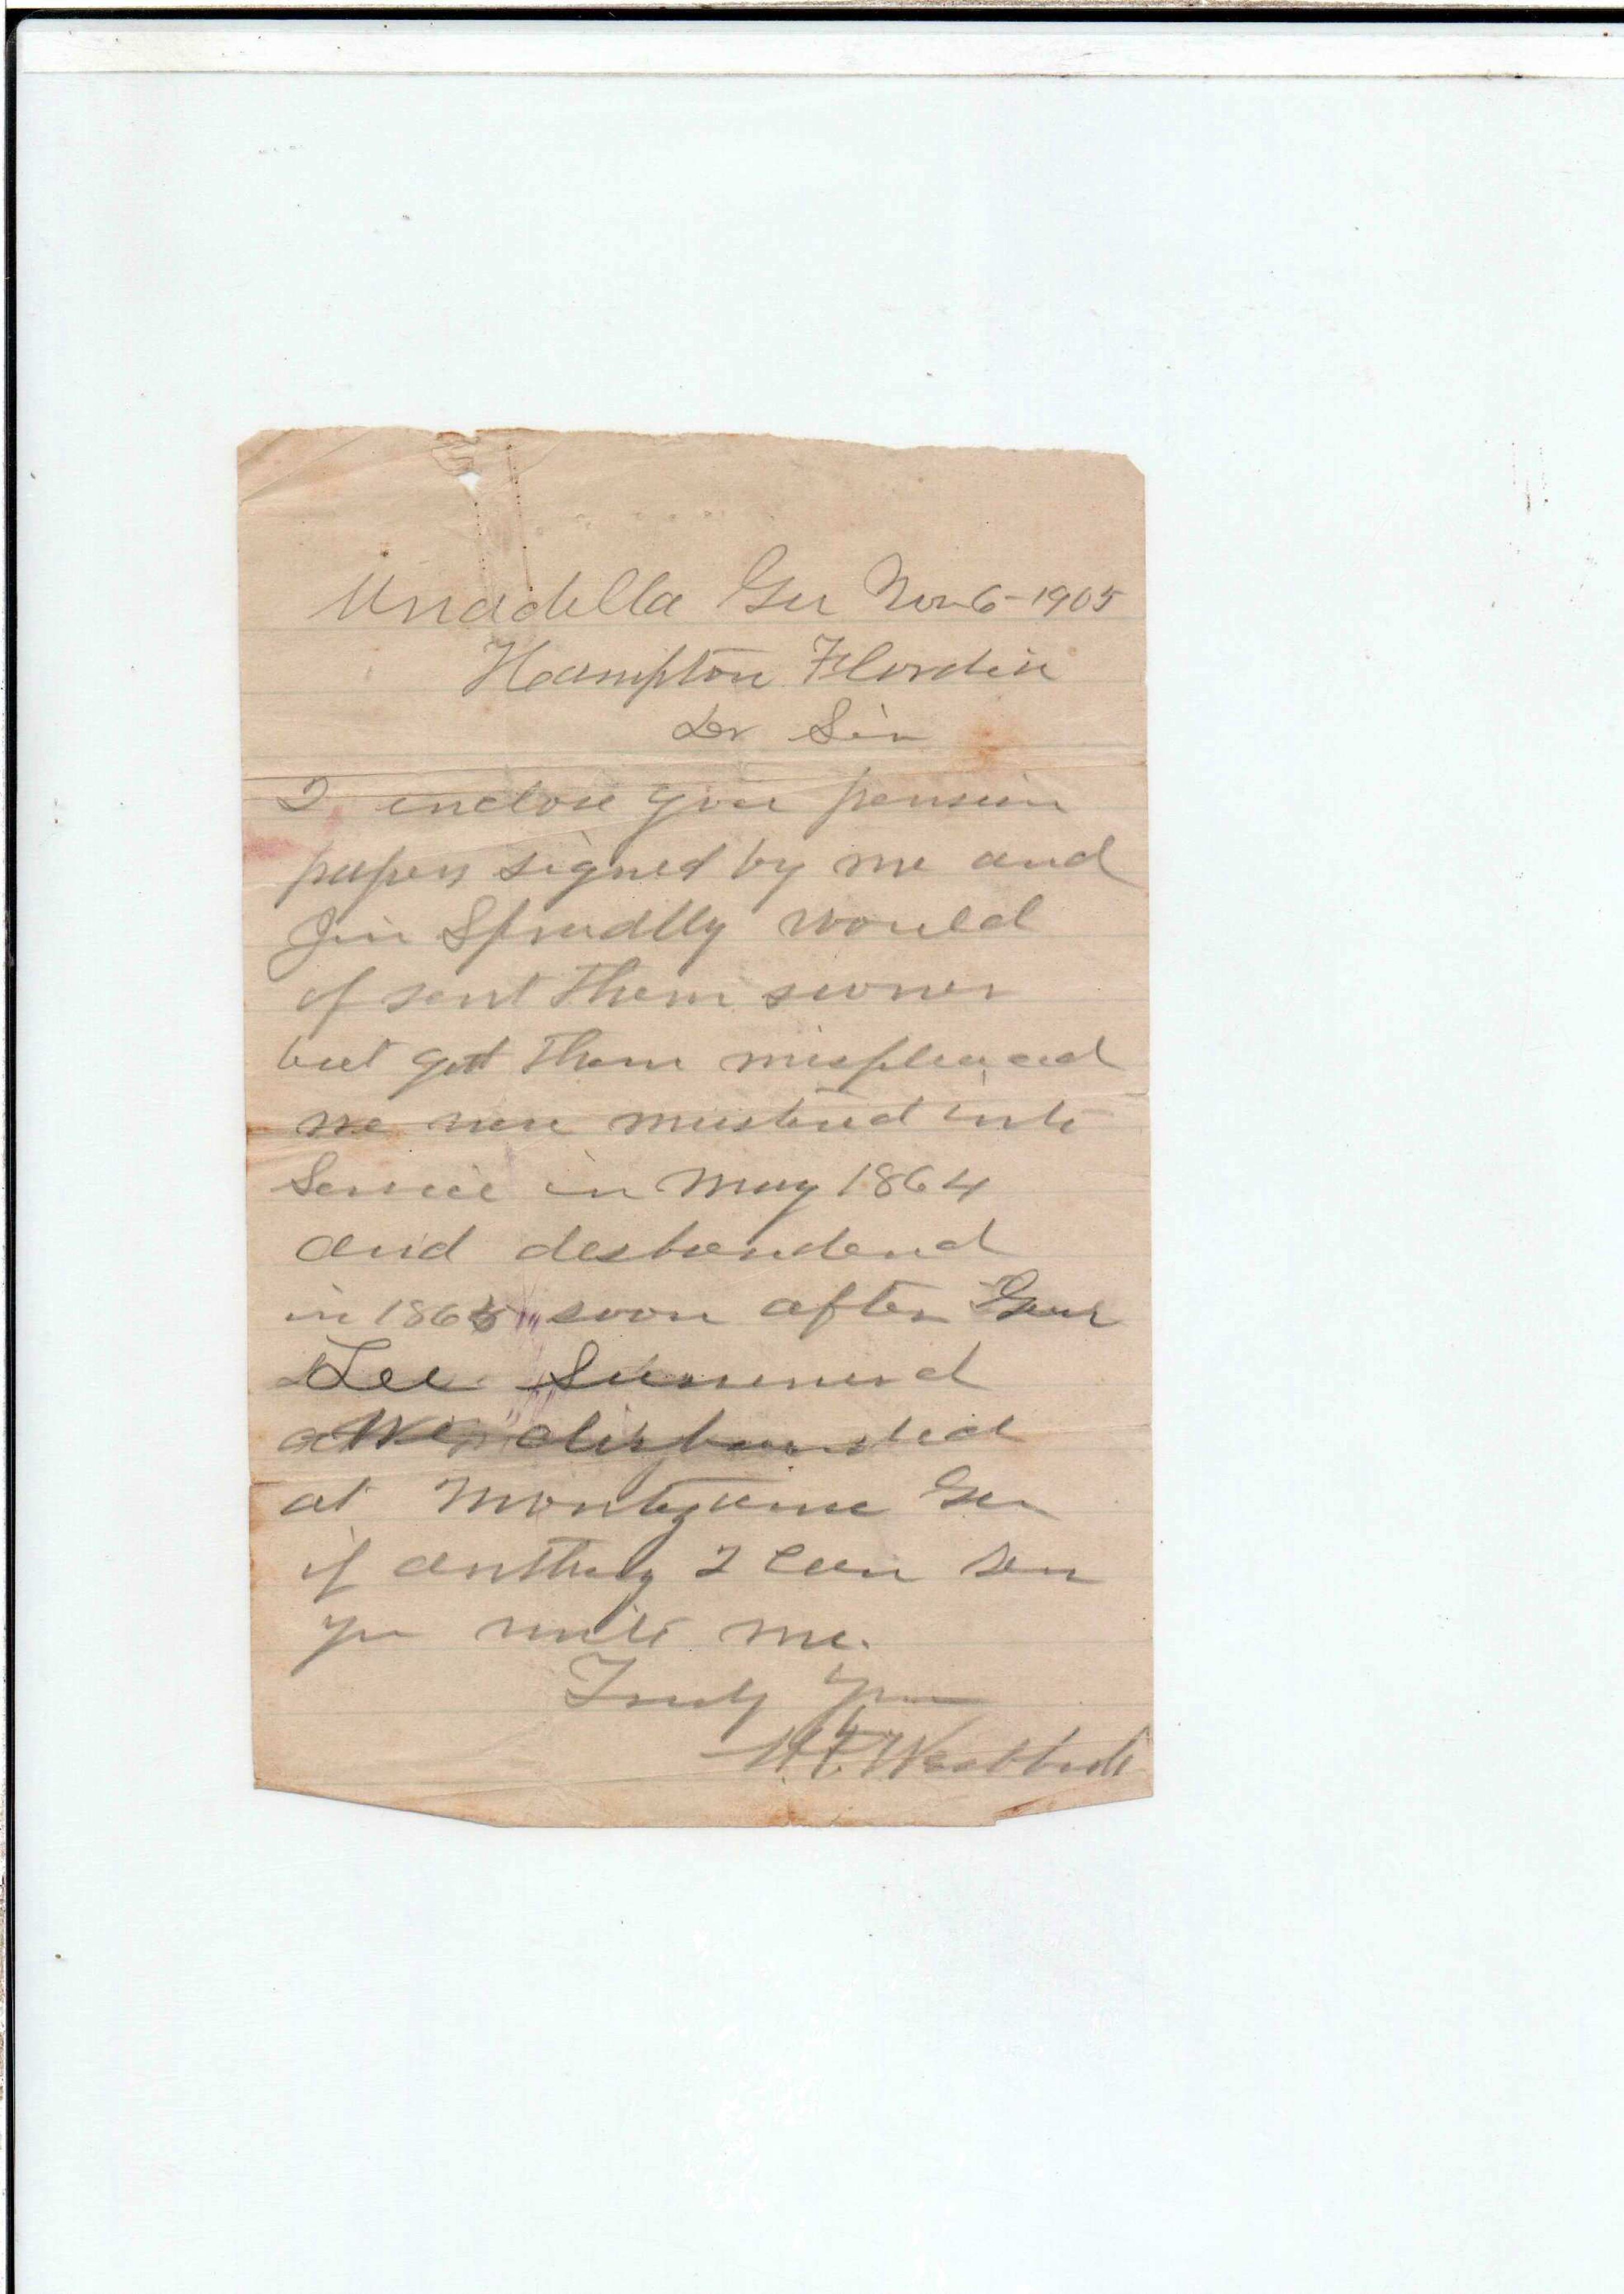 Unadella Ga Nov 6-1905
Hampton Flordia
Dr Sir
I enclose your pension
papers signed by me and
Jim Spradlly would
of sent them sooner
but got them misplaced
we were musterd into
Service in May 1864
and desbandend
in 1865 soon after Genl
Lee Surrenerd
We disbanded
at Montezuma Ga
if anthing I can
you write me.
Truly yours